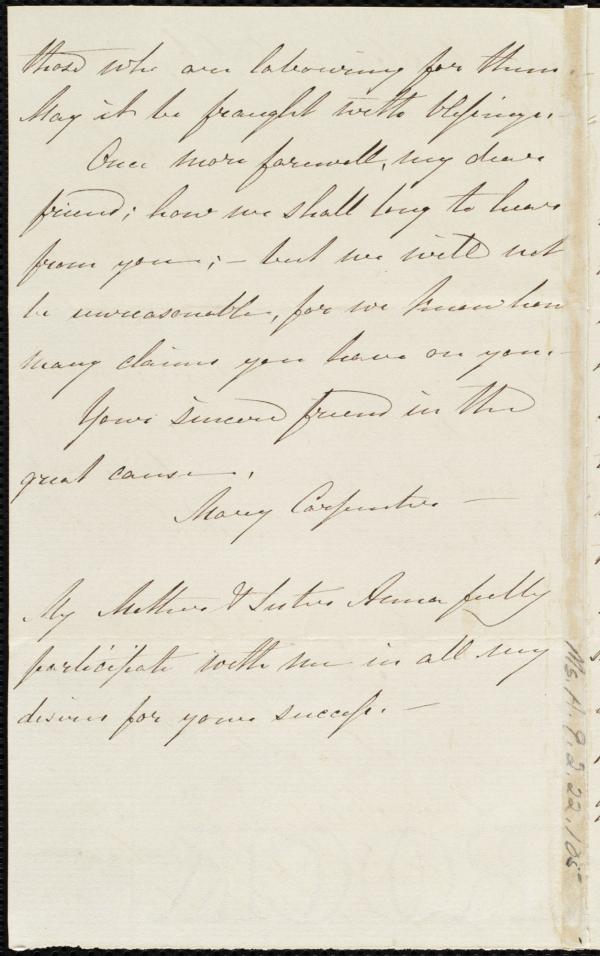 those who are labouring for them.-
May it be fraught with blessings.-
Once more farewell, my dear
friend; how we shall long to hear
from you; - but we will not
be unreasonable, for we know how
many claims you have on you.-
Your sincere friend in the
great cause,
Mary Carpenter -
My Mother & Sister Anna fully
participate with me in all my
desires for your success. -
Ms. A. 9. 2. 22. 105